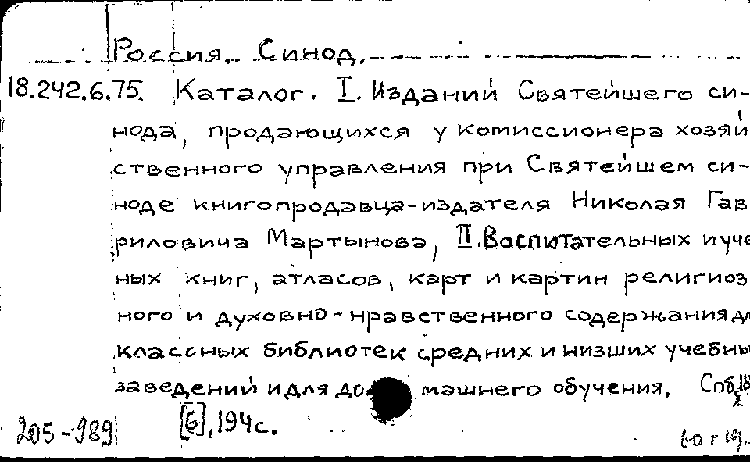 Россия. Синод.
18.242.6.75. Каталог. I. Изданий Святейшего си-
нода, продающихся у комиссионера хозяй
ственного управления при Святейшем си-
ноде книгопродавца-издателя Николая Гав
риловича Мартынова, II. Воспитательных и уче
ных книг, атласов, карт и картин религиоз
ного и духовно-нравственного содержания дл
классных библиотек средних и низших учебны
заведений и для домашнего обучения. Спб, 18
[6], 194 с.
205-989